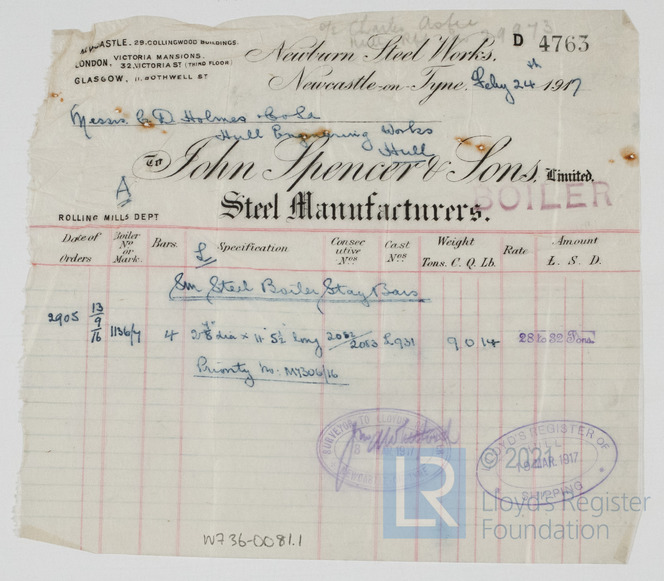 NEWCASTLE. 29. COLLINGWOOD BUILDINGS.
VICTORIA MANSIONS.
LONDON. 32, VICTORIA ST (THIRD FLOOR)
GLASGOW. BOTHWELL ST
Charles
Newburn Steel Works,
D 4763
Newcastle-on-Tyne, Feby 24th 1917
Messrs C D Holmes & Co Ld
Hull Engineering Works
Hull
To John Spencer & Sons, Limited,
A
BOILER
Steel Manufacturers.
ROLLING MILLS DEPT
Date of Orders
Boiler No or Mark.
Bars.
£
Specification
Consecutive Nos
Cast Nos
Weight
Tons. C. Q. Lb.
Rate
Amount
£. S. D.
Sm Steel Boiler Stay Bars
2905 13/9/16 1136/7 4 dia x 11' 5½" long 2082/2083 9 0 14 28 to 32 Tons.
Priority No. M7306/16
SURVEYOR TO LLOYD'S
1917
LLOYD'S REGISTER OF
HULL
MAR. 1917
SHIPPING
© 2021
LR
Lloyd's Register
Foundation
W736-0081.1